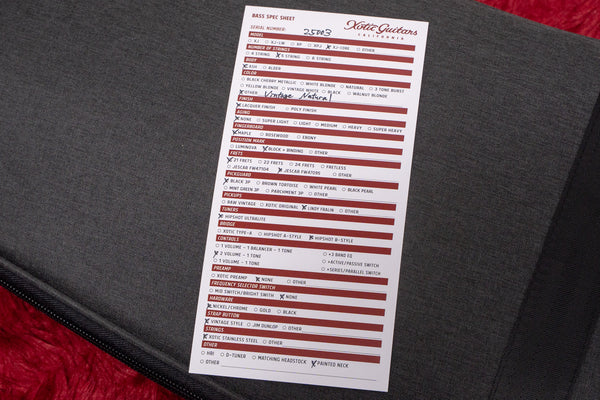 BASS SPEC SHEET
Xotic Guitars
CALIFORNIA
SERIAL NUMBER: 25003
MODEL
XJ XJ-LW XP XPJ XJ-CORE OTHER
NUMBER OF STRINGS
4 STRING 5 STRING 6 STRING
BODY
ASH ALDER
COLOR
BLACK CHERRY METALLIC WHITE BLONDE NATURAL 3 TONE BURST
YELLOW BLONDE VINTAGE WHITE BLACK WALNUT BLONDE
OTHER Vintage Natural
FINISH
LACQUER FINISH POLY FINISH
AGING
NONE SUPER LIGHT LIGHT MEDIUM HEAVY SUPER HEAVY
FINGERBOARD
MAPLE ROSEWOOD EBONY
POSITION MARK
LUMINOVA BLOCK + BINDING OTHER
FRETS
21 FRETS 22 FRETS 24 FRETS FRETLESS
JESCAR FW47104 JESCAR FW47095 OTHER
PICKGUARD
BLACK 3P BROWN TORTOISE WHITE PEARL BLACK PEARL
MINT GREEN 3P PARCHMENT 3P OTHER
PICKUPS
RAW VINTAGE XOTIC ORIGINAL LINDY FRALIN OTHER
TUNERS
HIPSHOT ULTRALITE
BRIDGE
XOTIC TYPE-A HIPSHOT A-STYLE HIPSHOT B-STYLE
CONTROLS
1 VOLUME - 1 BALANCER - 1 TONE +3 BAND EQ
2 VOLUME - 1 TONE +ACTIVE/PASSIVE SWITCH
1 VOLUME - 1 TONE +SERIES/PARALLEL SWITCH
PREAMP
XOTIC PREAMP NONE OTHER
FREQUENCY SELECTOR SWITCH
MID SWITCH/BRIGHT SWITH NONE
HARDWARE
NICKEL/CHROME GOLD BLACK
STRAP BUTTON
VINTAGE STYLE JIM DUNLOP OTHER
STRINGS
XOTIC STAINLESS STEEL OTHER
OTHER
HRI D-TUNER MATCHING HEADSTOCK PAINTED NECK
OTHER